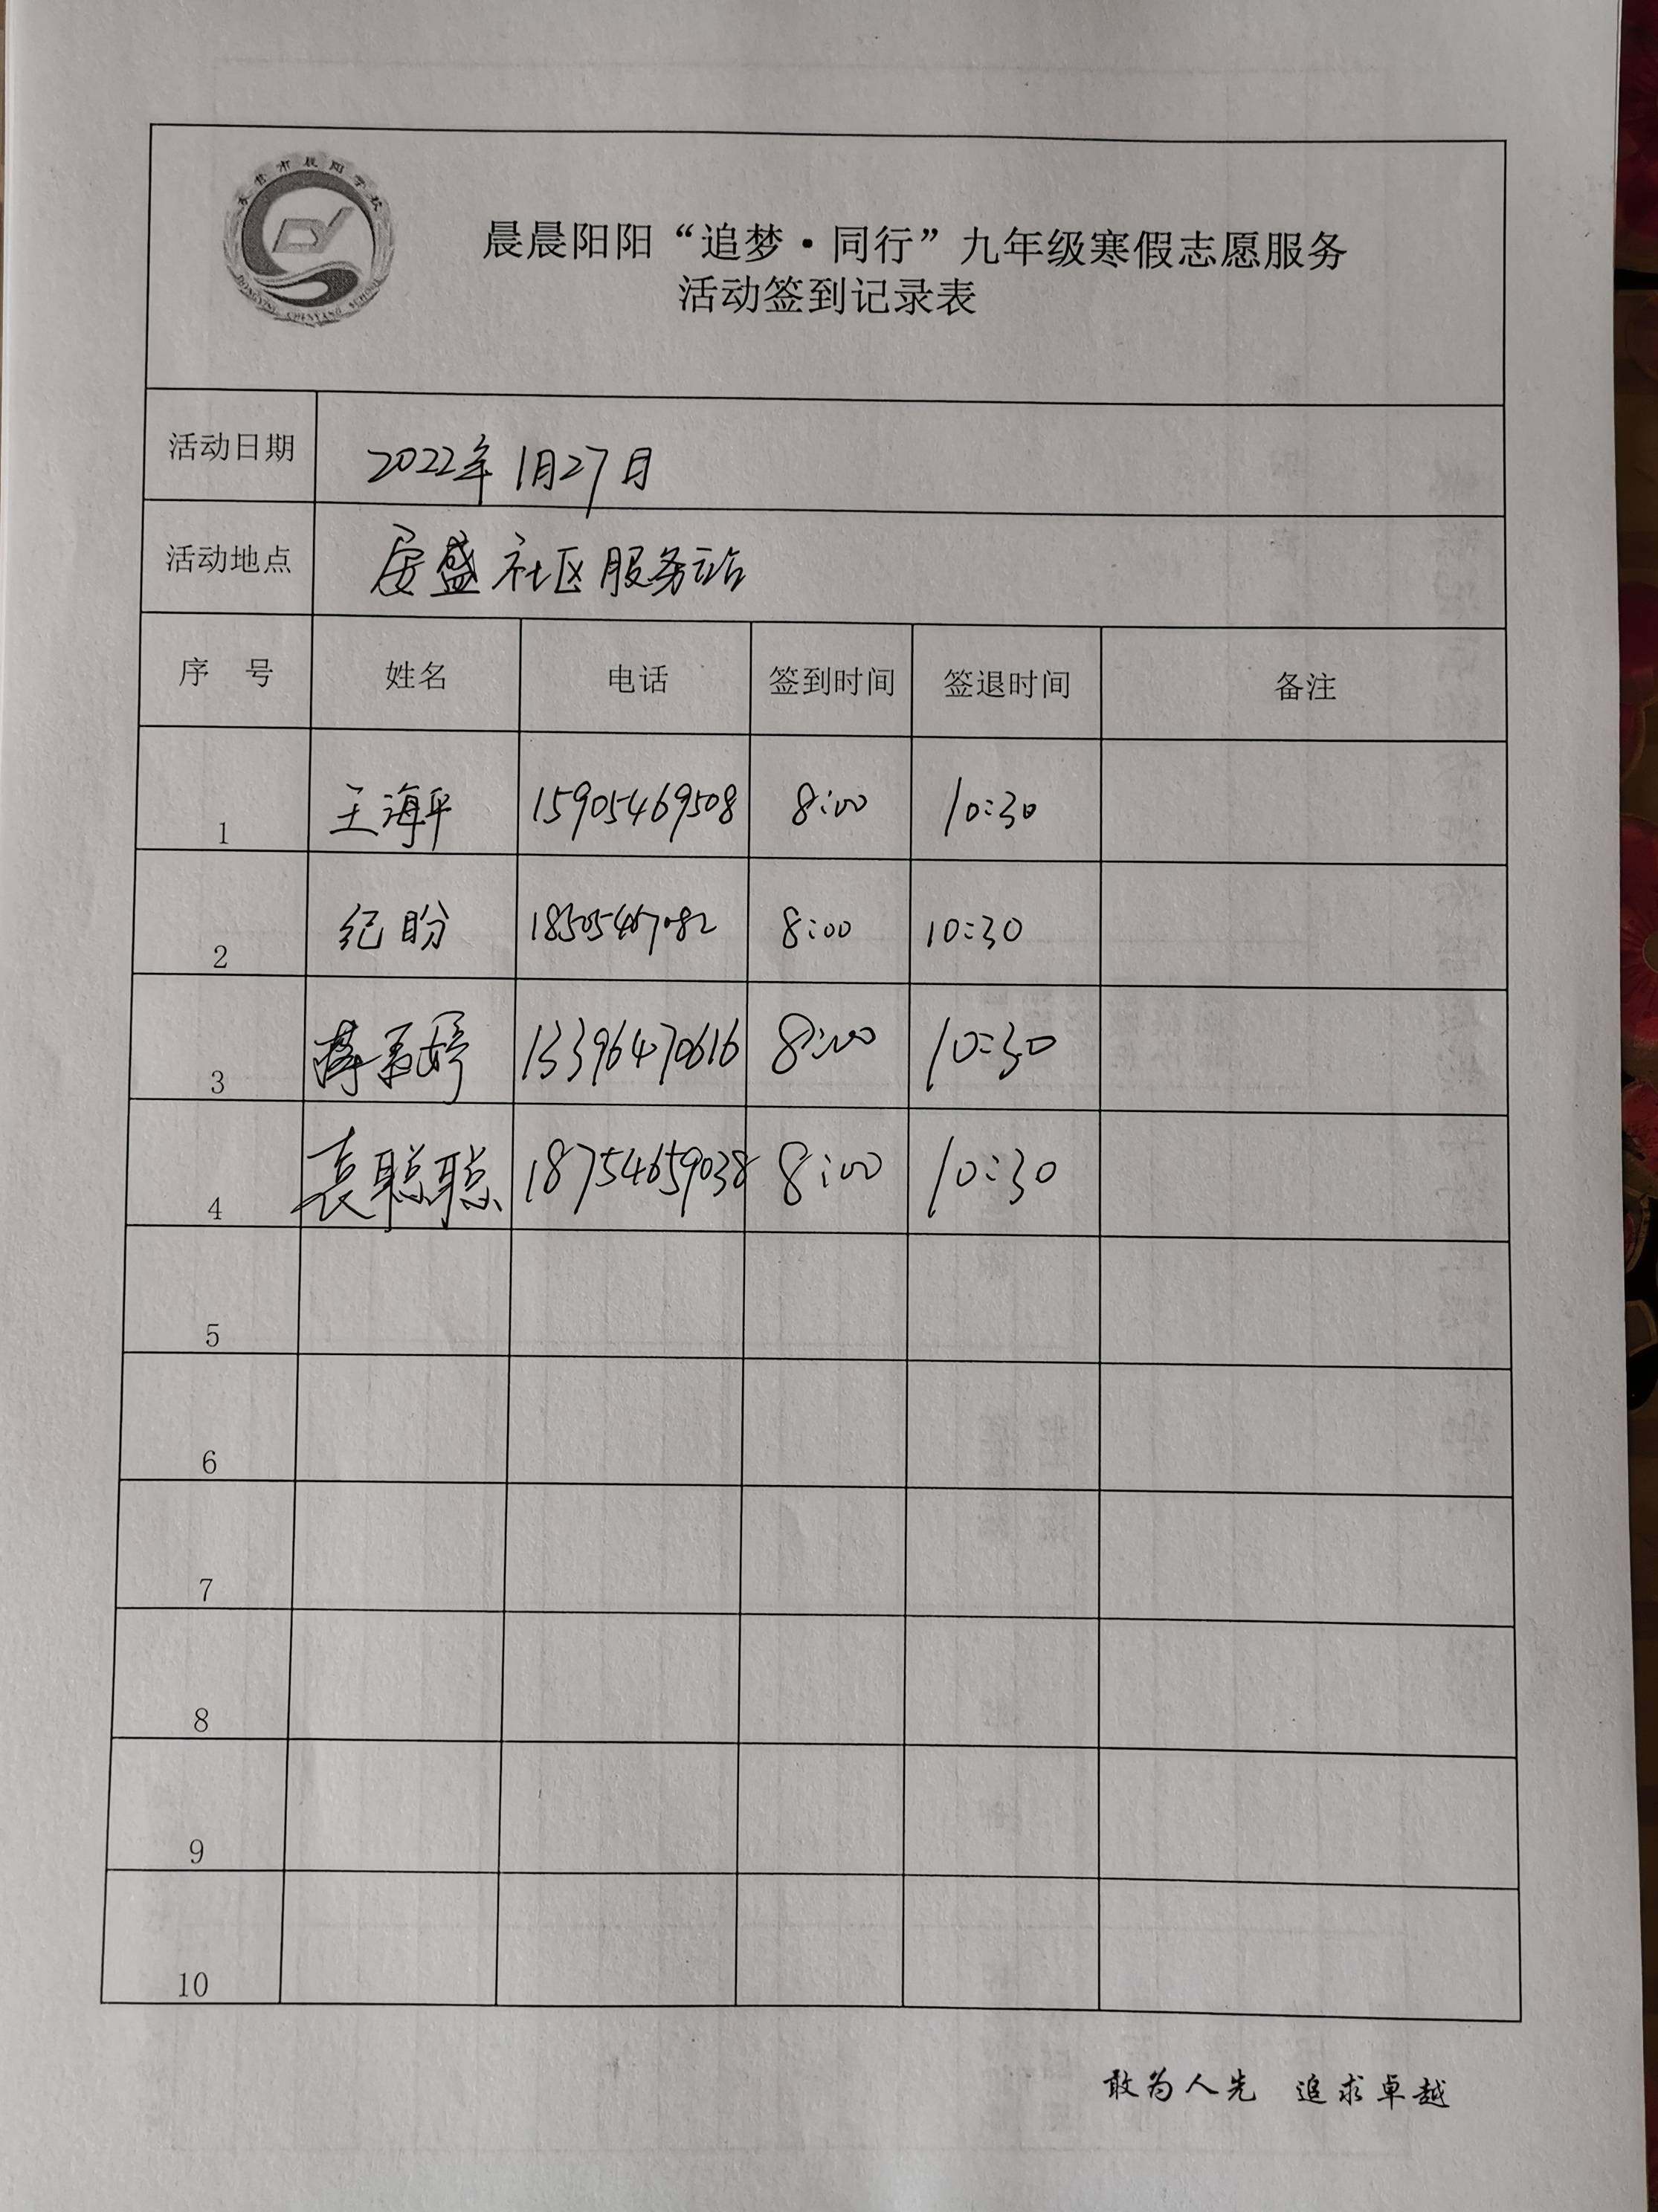 东营市晨阳学校
DONGYING CHENYANG SCHOOL
晨晨阳阳“追梦·同行”九年级寒假志愿服务
活动签到记录表
活动日期 2022年1月27日
活动地点 安盛社区服务站
序 号 姓名 电话 签到时间 签退时间 备注
1 王海平 15905469508 8:00 10:30
2 纪盼 8:00 10:30
3 13396470616 8:00 10:30
4 袁聪聪 18754659038 8:00 10:30
5
6
7
8
9
10
敢为人先 追求卓越